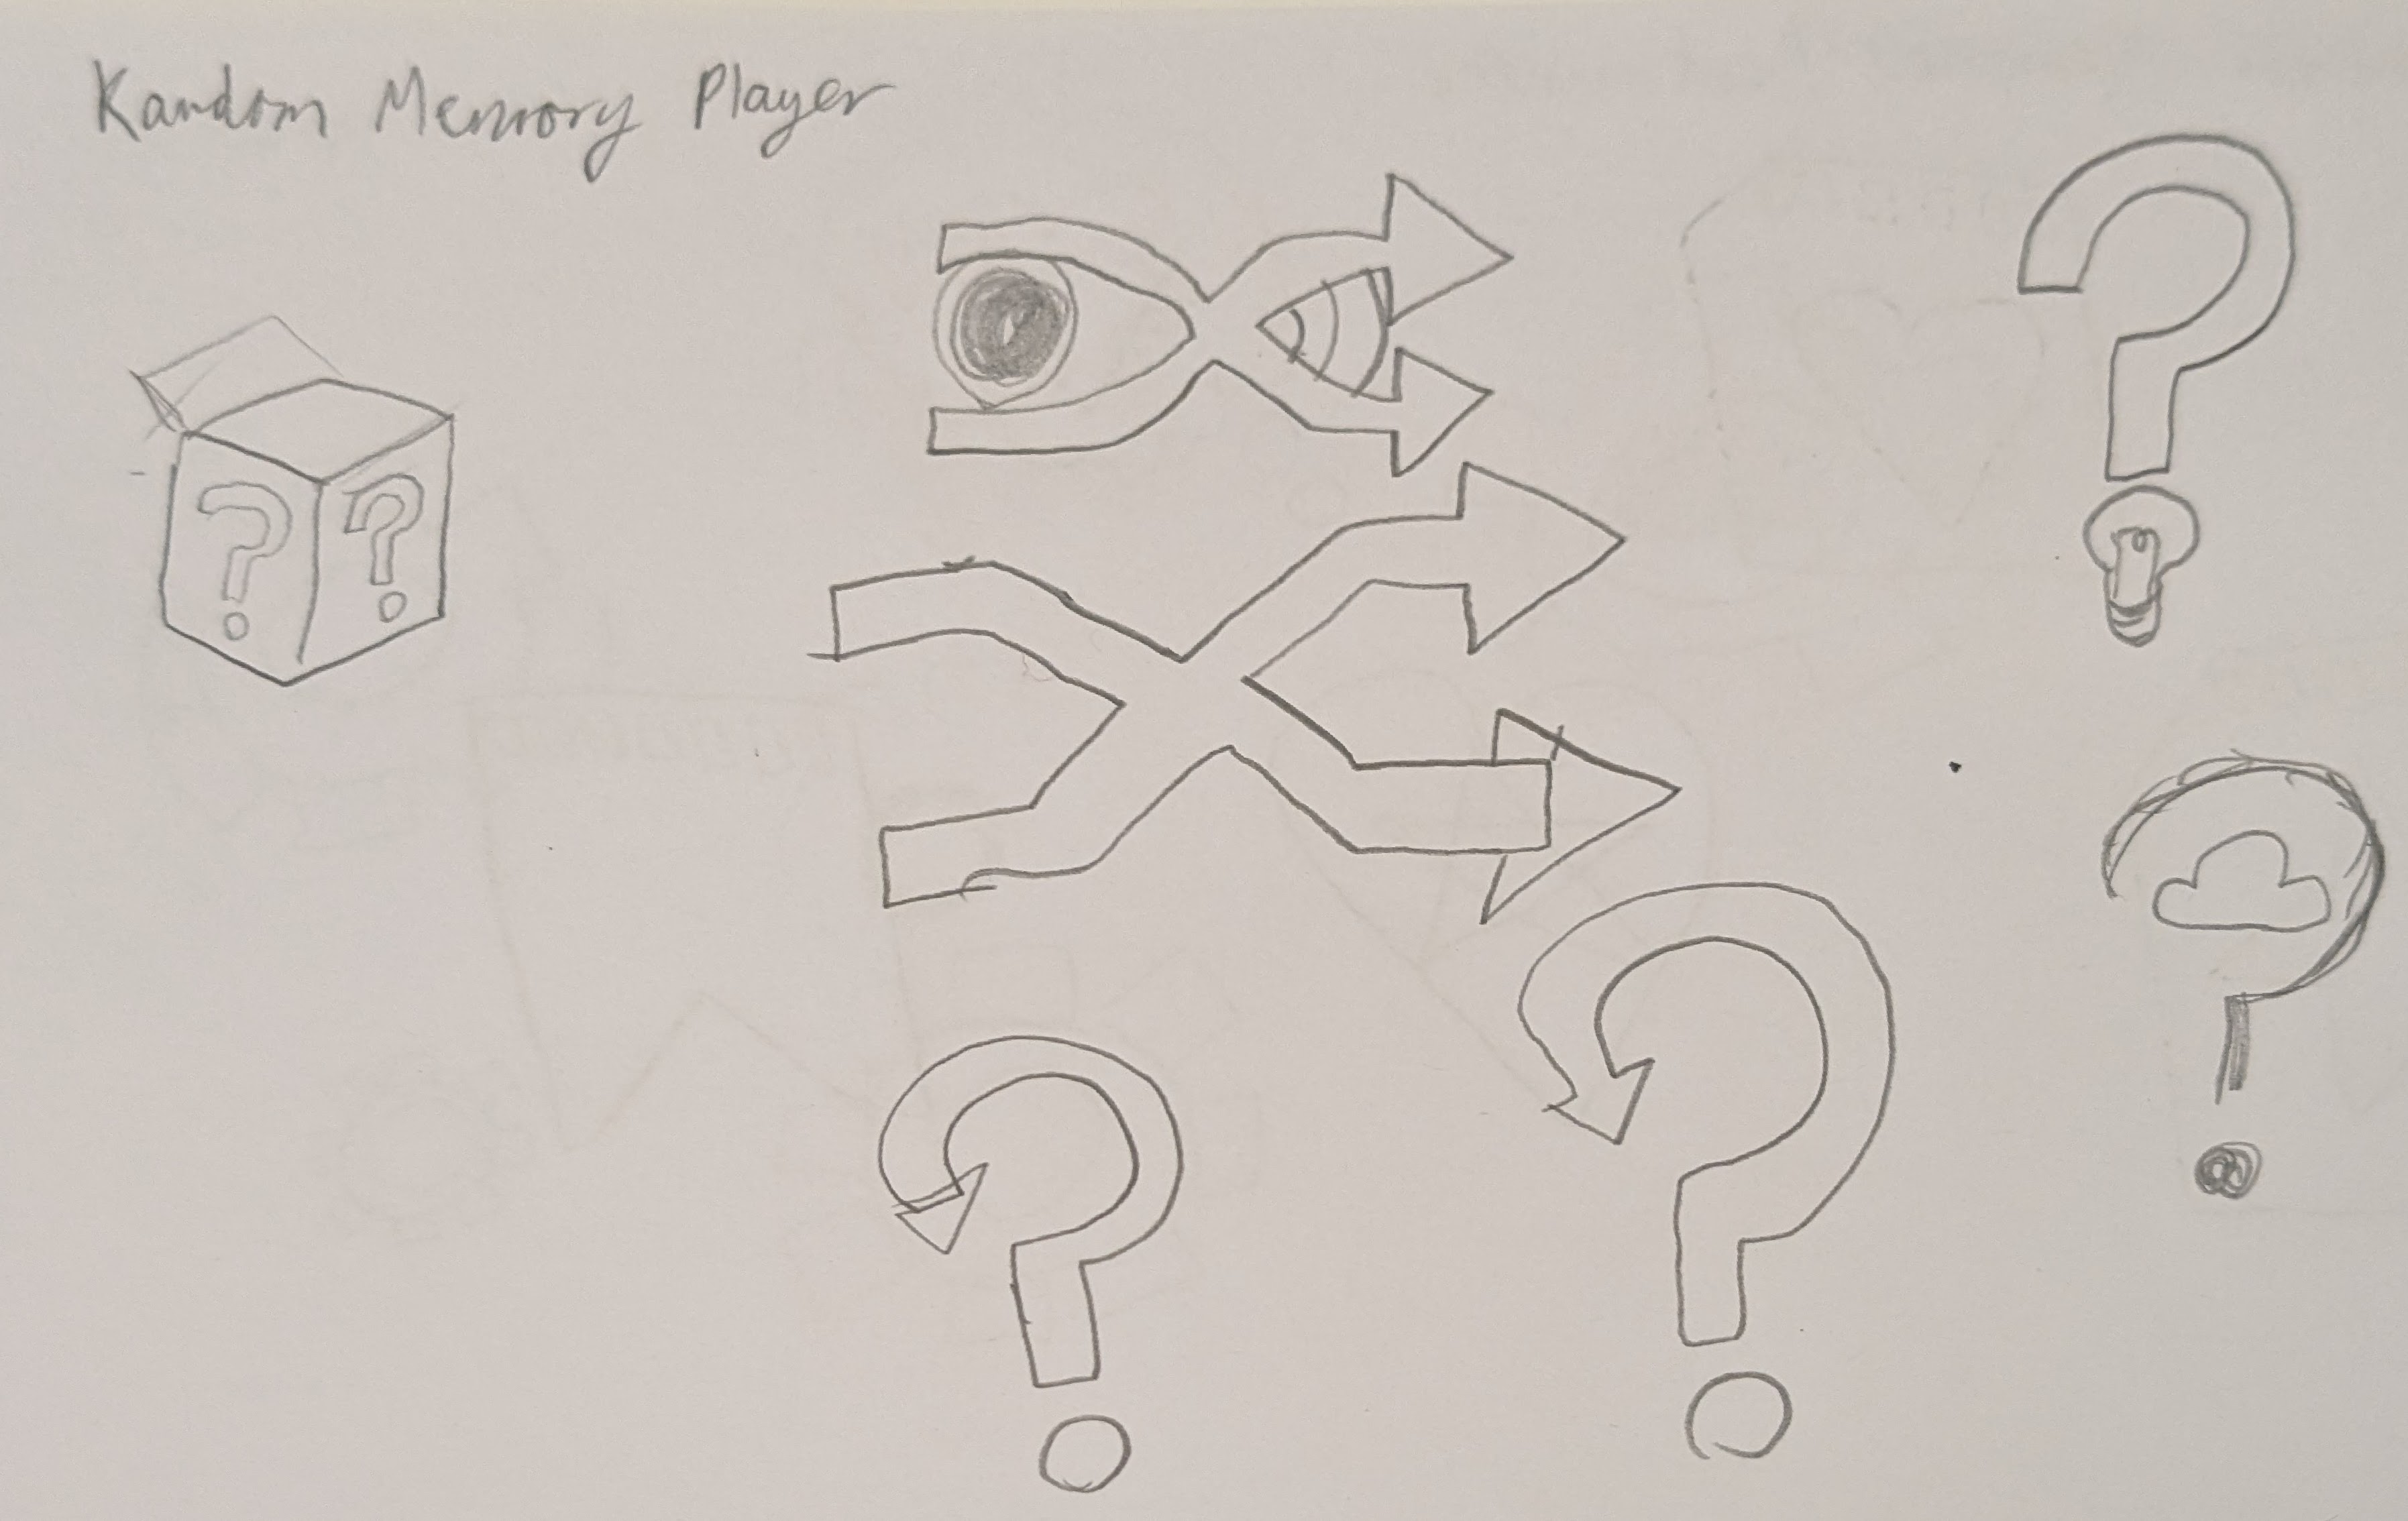 Random Memory Player
? ?